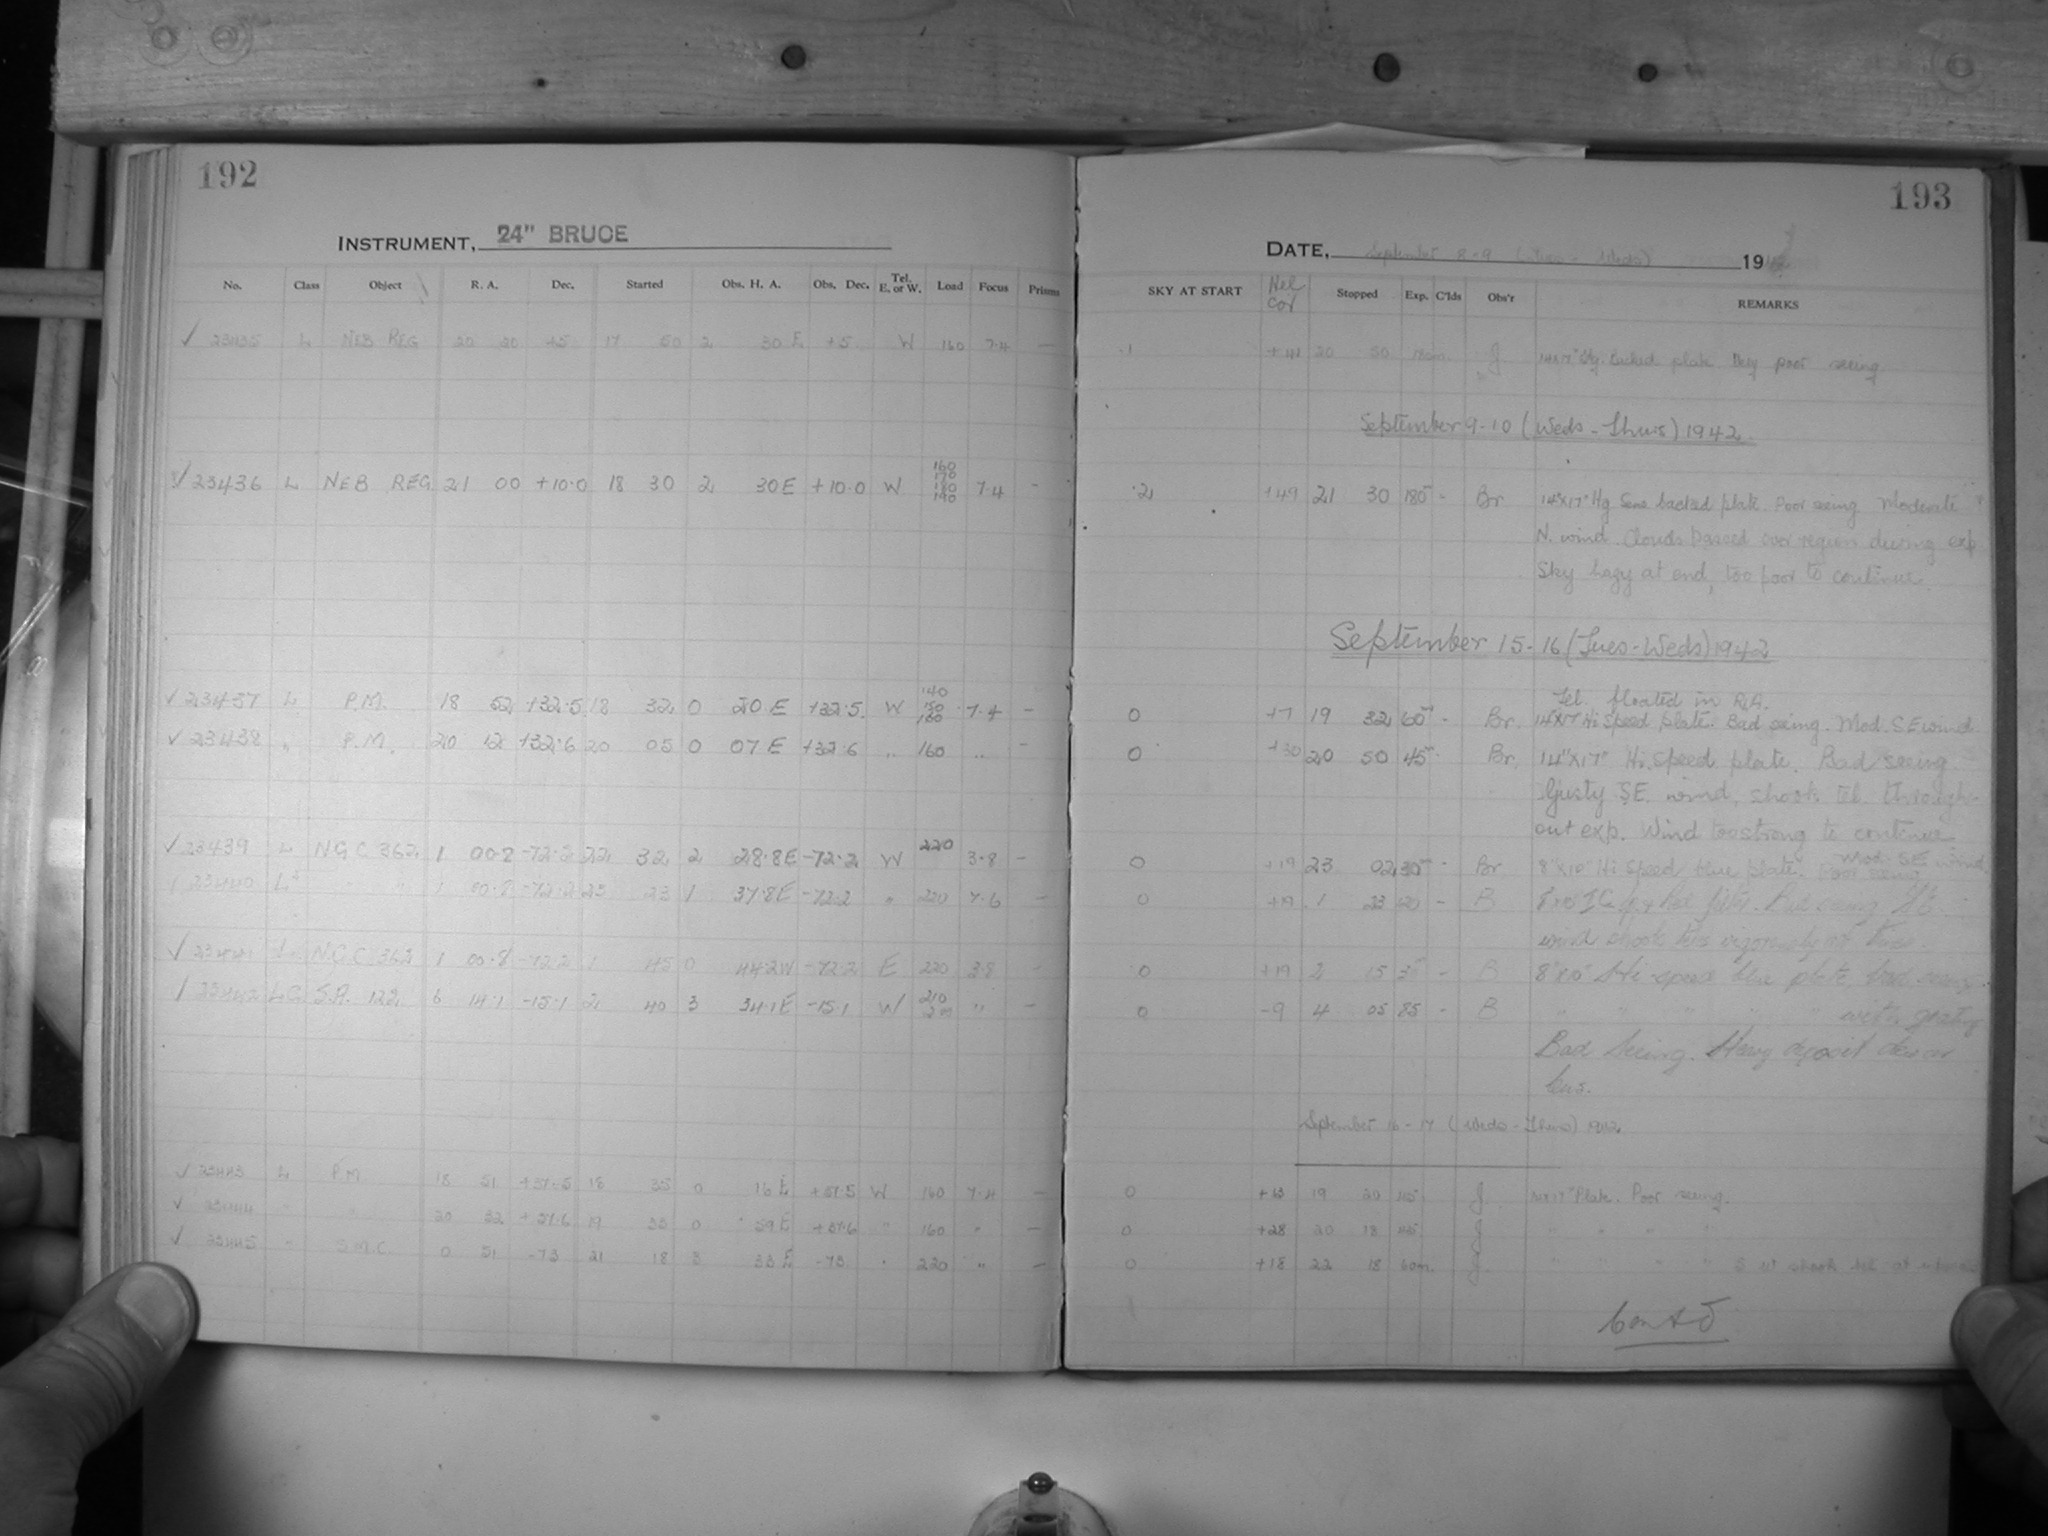 192
INSTRUMENT, 24" BRUCE
No. Class Object R. A. Dec. Started Obs. H. A. Obs. Dec. Tel. E. or W. Load Focus Prisms
✓ 23435 L NEB REG 20 20 +5 17 50 2 30 E +5 W 160 7.4 —
✓ 23436 L NEB REG 21 00 +10.0 18 30 2 30 E +10.0 W 160 170 180 190 7.4 -
✓ 23437 L P.M. 18 52 +32.5 18 32 0 20 E +32.5 W 140 150 160 7.4 -
✓ 23438 " P.M. 20 12 +32.6 20 05 0 07 E +32.6 " 160 " -
✓ 23439 L NGC 362 1 00.8 -72.2 22 32 2 28.8 E -72.2 W 220 3.8 -
23440 L " " 1 00.8 -72.2 23 23 1 37.8 E -72.2 " 220 7.6 -
✓ 23441 L NGC 362 1 00.8 -72.2 1 45 0 44.2 W -72.2 E 220 3.8 -
23442 LC S.A. 122 6 14.1 -15.1 2 40 3 34.1 E -15.1 W 210 " -
✓ 23443 L P.M. 18 51 +37.5 18 35 0 16 E +37.5 W 160 7.4 —
✓ 23444 " " 20 32 +37.6 19 33 0 59 E +37.6 " 160 "
✓ 23445 " S.M.C. 0 51 -73 21 18 3 33 E -73 " 220 " —
193
DATE, September 8-9 (Tues - Weds) 1942
SKY AT START Hel Cor Stopped Exp. C'lds Obs'r REMARKS
-1 +41 20 50 180m. J 14x17" backed plate. Very poor seeing
September 9-10 (Weds - Thurs) 1942
2 +49 21 30 180m - Br 14"x17" Hg backed plate. Poor seeing Moderate
N. wind. Clouds passed over region during exp
Sky hazy at end, too poor to continue
September 15-16 (Tues-Weds) 1942
Tel. floated in R.A.
0 +7 19 32 60m - Br. 14"x17" Hi Speed plate. Bad seeing. Mod. SE wind
0 +30 20 50 45m - Br. 14"x17" Hi. Speed plate. Bad seeing
Gusty SE. wind, shook tel. through-
out exp. Wind too strong to continue
0 +19 23 02 30m - Br 8"x10" Hi Speed blue plate. Poor seeing Mod. SE wind
0 +19 1 23 120 - B 8x10 red filter. Bad seeing SE
wind shook tel. vigorously at times.
0 +19 2 15 30m - B 8"x10" Hi-speed blue plate, bad seeing.
0 -9 4 05 85 - B " " " " " with grating
Bad Seeing. Heavy deposit dew on
lens.
September 16-17 (Weds - Thurs) 1942.
0 +13 19 20 45 J 14x17" Plate. Poor seeing.
0 +28 20 18 45 J " " " "
0 +18 22 18 60m. J " " " " S W shook tel at
Cont'd